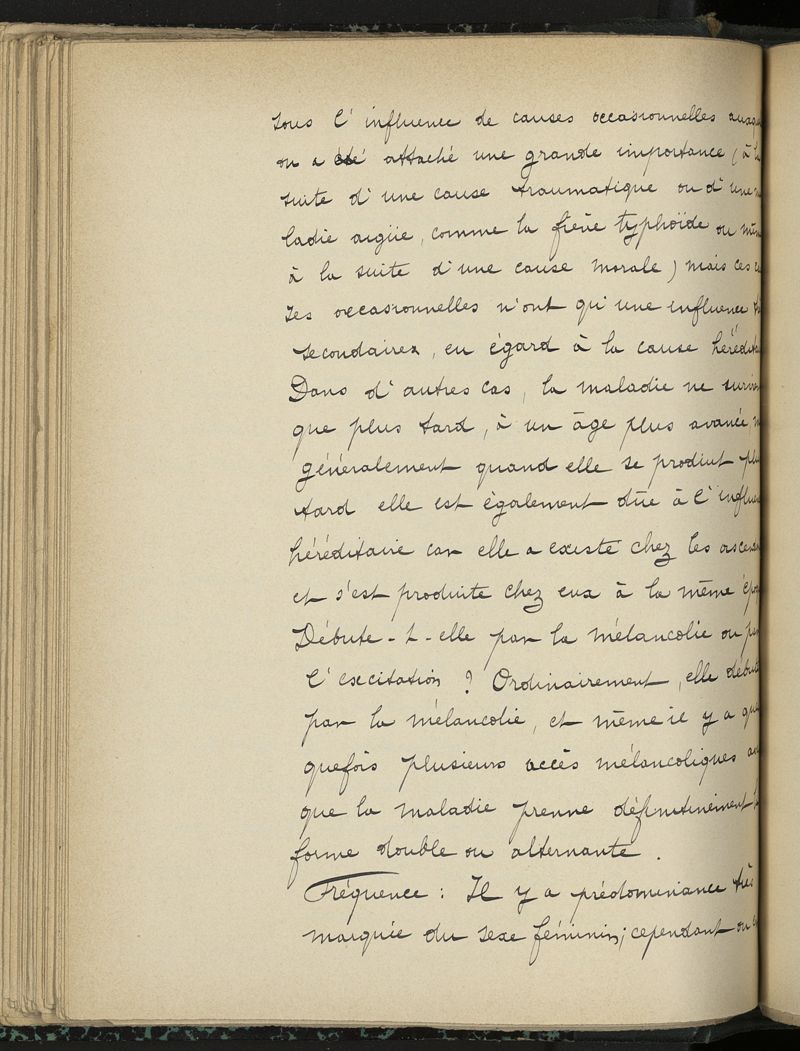 sous l'influence de causes occasionnelles auxq
on a été attaché une grande importance (à la
suite d'une cause traumatique ou d'une m
ladie aigüe, comme la fièvre typhoïde ou mêm
à la suite d'une cause morale) mais ces c
ses occasionnelles n'ont qu'une influence
secondaires, eu égard à la cause hérédit
Dans d'autres cas, la maladie ne survien
que plus tard, à un âge plus avancée, m
généralement quand elle se produit plus
tard elle est également dûe à l'influen
héréditaire car elle a existe chez les ascen
et s'est produite chez eux à la même épo
Débute-t-elle par la mélancolie ou par
l'excitation ? Ordinairement, elle débute
par la mélancolie, et même il y a quel
quefois plusieurs accès mélancoliques av
que la maladie prenne définitivement l
forme double ou alternante.
Fréquence : Il y a prédominance très
marquée du sexe féminin; cependant on